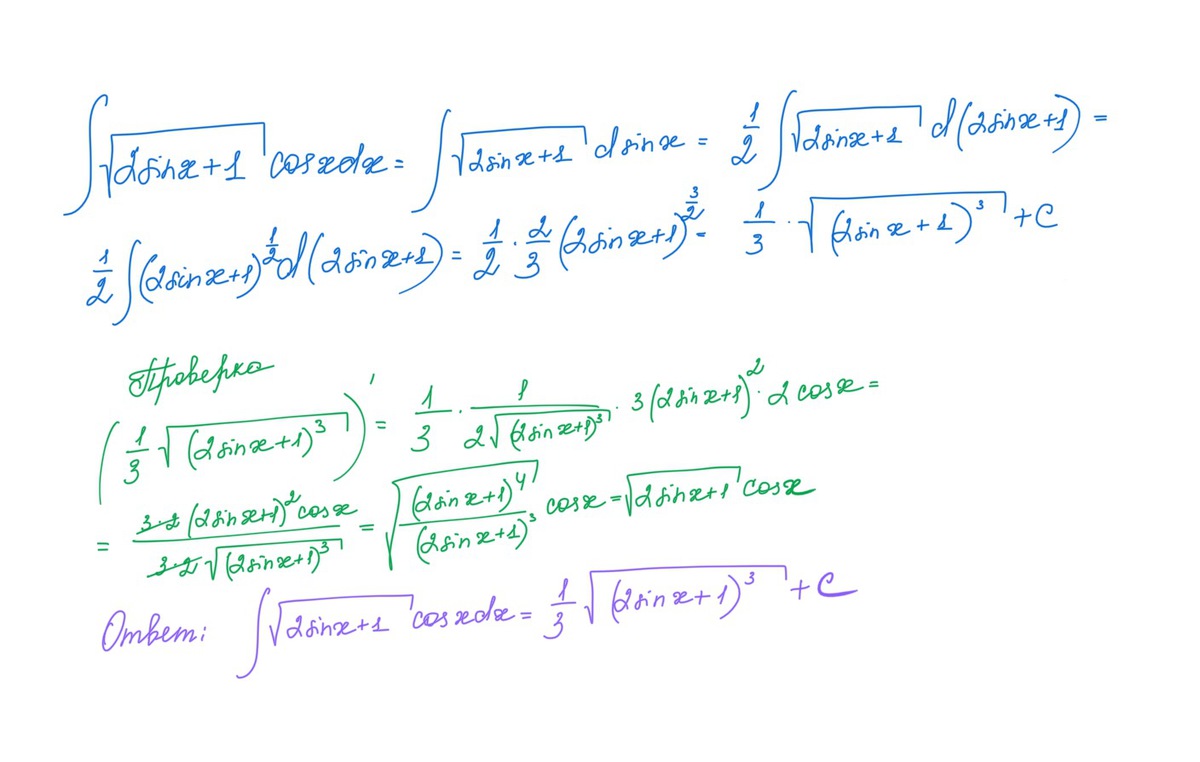 ∫√(2sinx+1) cosxdx = ∫√(2sinx+1) dsinx = 1/2 ∫√(2sinx+1) d(2sinx+1) =
1/2 ∫(2sinx+1)^(1/2) d(2sinx+1) = 1/2 · 2/3 (2sinx+1)^(3/2) = 1/3 · √((2sinx+1)^3) + C
Проверка
(1/3 √((2sinx+1)^3))' = 1/3 · 1/(2√((2sinx+1)^3)) · 3(2sinx+1)^2 · 2cosx =
= (3·2(2sinx+1)^2 cosx)/(3·2√((2sinx+1)^3)) = √((2sinx+1)^4/(2sinx+1)^3) cosx = √(2sinx+1) cosx
Ответ: ∫√(2sinx+1) cosxdx = 1/3 √((2sinx+1)^3) + C